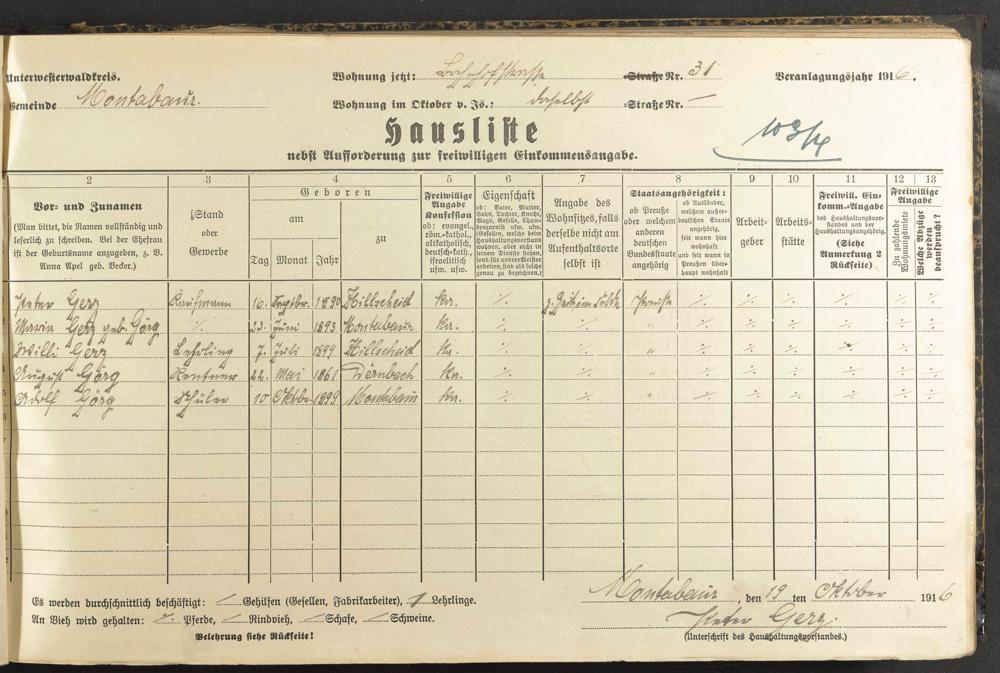 Unterwesterwaldkreis. Wohnung jetzt: Bahnhofstraße Straße Nr. 31 Veranlagungsjahr 1916.
Gemeinde Montabaur. Wohnung im Oktober v. Js.: daselbst Straße Nr. —
Hausliste
nebst Aufforderung zur freiwilligen Einkommensangabe.
2 3 4 5 6 7 8 9 10 11 12 13
Vor- und Zunamen
(Man bittet, die Namen vollständig und
leserlich zu schreiben. Bei der Ehefrau
ist der Geburtsname anzugeben, z. B.
Anna Apel geb. Becker.)
Stand
oder
Gewerbe
Geboren
am
zu
Tag Monat Jahr
Freiwillige
Angabe
Konfession
ob: evangel.,
röm.-kathol.,
altkatholisch,
deutsch-kath.,
israelitisch
usw. usw.
Eigenschaft
ob: Vater, Mutter,
Sohn, Tochter, Knecht,
Magd, Geselle, Cham-
bregarnist usw. usw.
(Gesellen, welche beim
Haushaltungsvorstand
wohnen, aber nicht in
seinem Dienste stehen,
sond. für andere Meister
arbeiten, sind als solche
genau zu bezeichnen.)
Angabe des
Wohnsitzes, falls
derselbe nicht am
Aufenthaltsorte
selbst ist
Staatsangehörigkeit:
ob Preuße
oder welchem
anderen
deutschen
Bundesstaate
angehörig
ob Ausländer,
welchem außer-
deutschen Staat
angehörig,
seit wann hier
wohnhaft
und seit wann in
Preußen über-
haupt wohnhaft
Arbeit-
geber
Arbeits-
stätte
Freiwill. Ein-
komm.-Angabe
des Haushaltungsvor-
standes und der
Haushaltungsangehörig.
(Siehe
Anmerkung 2
Rückseite)
Freiwillige
Angabe
Zu zahlende
Wohnungsmiete
Welche Abzüge
werden
beansprucht?
Peter Gerz Kaufmann 16. Septbr. 1890 Hillscheid Kn. ·/· Preuße ·/· ·/· ·/· ·/· ·/· ·/·
Maria Gerz geb. Görg ·/· 23. Juni 1893 Montabaur Kn. ·/· ·/· " ·/· ·/· ·/· ·/· ·/· ·/·
Willi Gerz Lehrling 7. Juli 1899 Hillscheid Kn. ·/· ·/· " ·/· ·/· ·/· ·/· ·/· ·/·
August Görg Rentner 22. Mai 1861 Dernbach Kn. ·/· ·/· " ·/· ·/· ·/· ·/· ·/· ·/·
Adolf Görg Schüler 10 Oktbr. 1899 Montabaur Kn. ·/· ·/· " ·/· ·/· ·/· ·/· ·/· ·/·
Es werden durchschnittlich beschäftigt: / Gehilfen (Gesellen, Fabrikarbeiter), 1 Lehrlinge.
An Vieh wird gehalten: ·/· Pferde, / Rindvieh, / Schafe, / Schweine.
Belehrung siehe Rückseite!
Montabaur, den 19 ten Oktober 1916
Peter Gerz.
(Unterschrift des Haushaltungsvorstandes.)